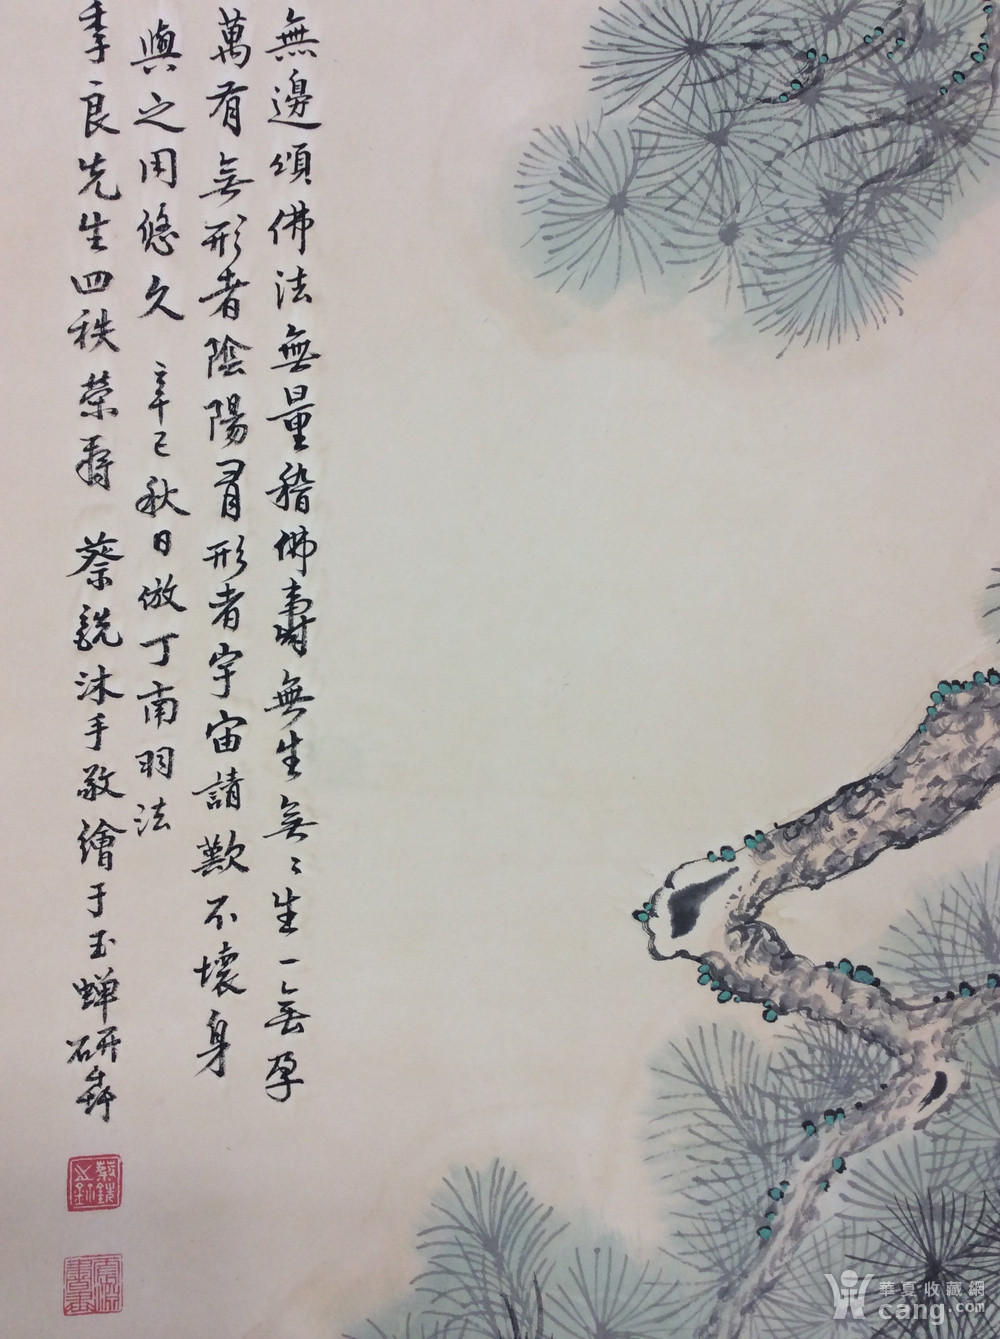 無邊頌佛法無量稽佛壽無生無〻生一無孕
萬有無形者陰陽有形者宇宙請歎不壞身
與之用悠久 辛巳秋日倣丁南羽法
季良先生四秩榮壽 蔡銑沐手敬繪于玉蟬研斋
華夏收藏網
cang.com